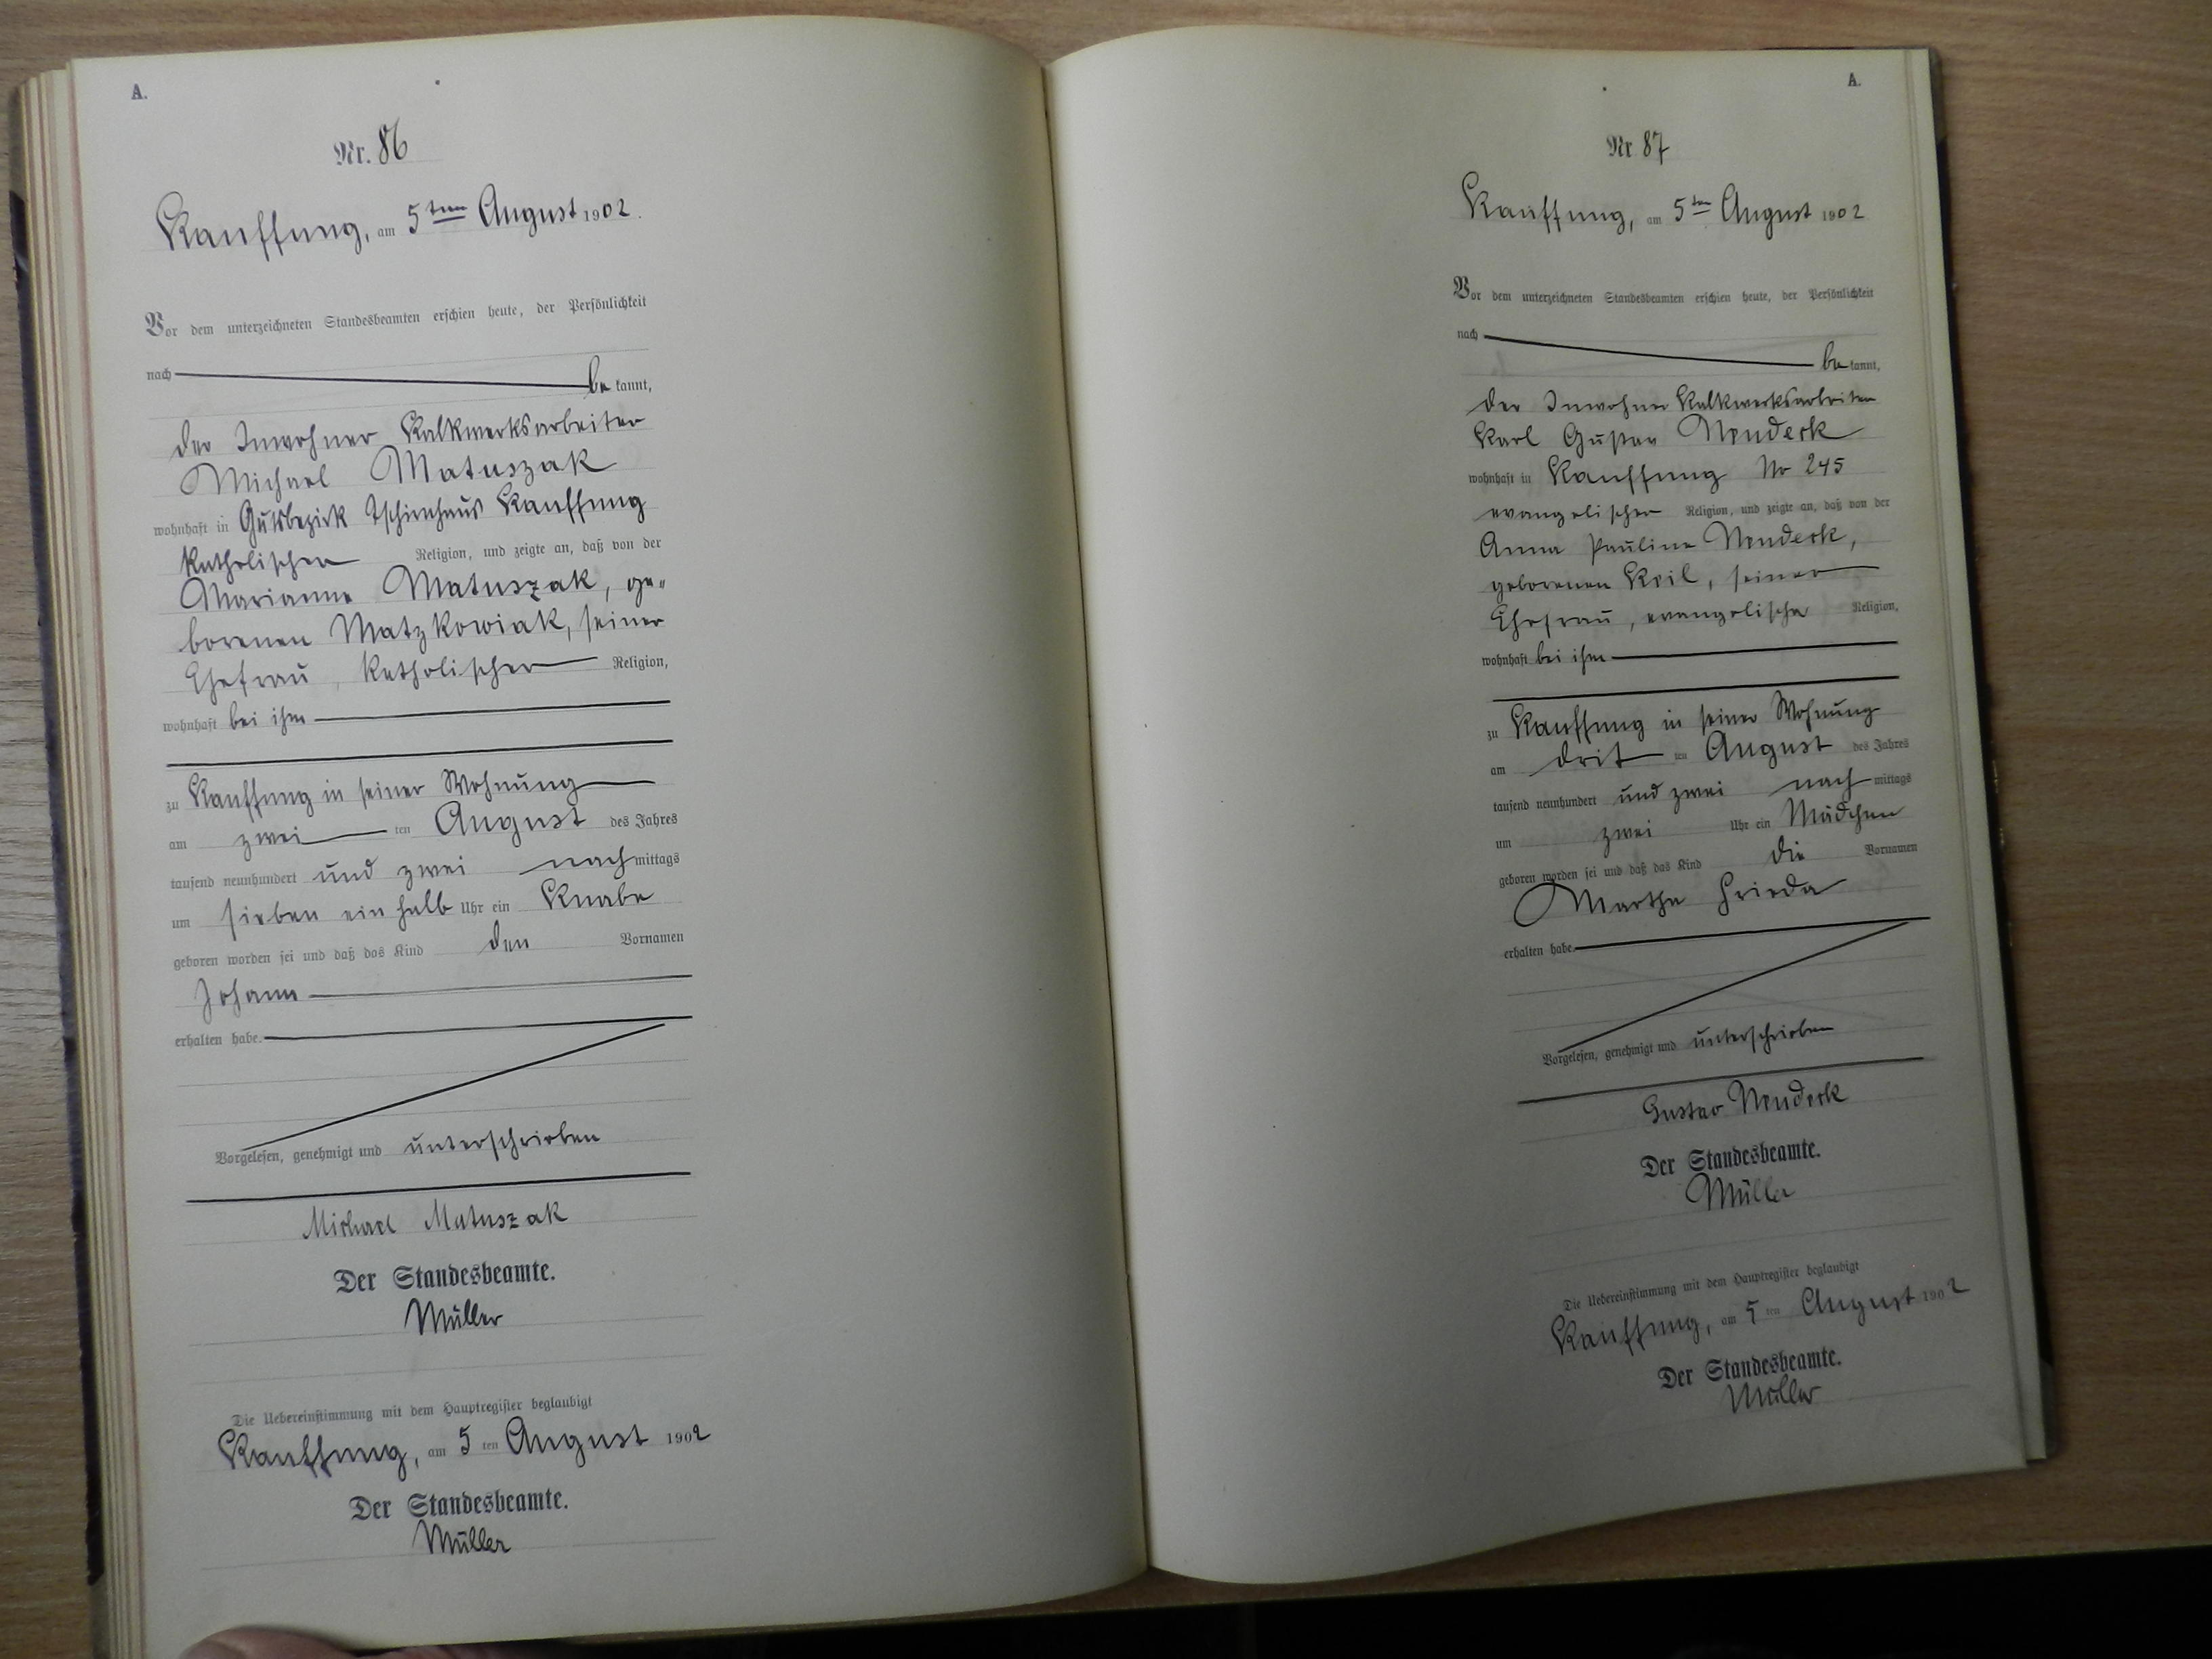 A.
Nr. 86
Kauffung, am 5ten August 1902.
Vor dem unterzeichneten Standesbeamten erschien heute, der Persönlichkeit
nach be kannt,
der Inwohner Kalkwerksarbeiter
Michael Matuszak
wohnhaft in Gutsbezirk Tschirnhaus Kauffung
katholischer Religion, und zeigte an, daß von der
Marianna Matuszak, ge„
borenen Matzkowiak, seiner
Ehefrau, katholischer Religion,
wohnhaft bei ihm
zu Kauffung in seiner Wohnung
am zwei ten August des Jahres
tausend neunhundert und zwei nach mittags
um sieben ein halb Uhr ein Knabe
geboren worden sei und daß das Kind den Vornamen
Johann
erhalten habe.
Vorgelesen, genehmigt und unterschrieben
Michael Matuszak
Der Standesbeamte.
Müller
Die Uebereinstimmung mit dem Hauptregister beglaubigt
Kauffung, am 5 ten August 1902
Der Standesbeamte.
Müller
A.
Nr 87
Kauffung, am 5ten August 1902
Vor dem unterzeichneten Standesbeamten erschien heute, der Persönlichkeit
nach be kannt,
der Inwohner Kalkwerksarbeiter
Karl Gustav Neudeck
wohnhaft in Kauffung No 245
evangelischer Religion, und zeigte an, daß von der
Anna Pauline Neudeck,
geborenen Keil, seiner
Ehefrau, evangelischer Religion,
wohnhaft bei ihm
zu Kauffung in seiner Wohnung
am drit ten August des Jahres
tausend neunhundert und zwei nach mittags
um zwei Uhr ein Mädchen
geboren worden sei und daß das Kind die Vornamen
Martha Frieda
erhalten habe.
Vorgelesen, genehmigt und unterschrieben
Gustav Neudeck
Der Standesbeamte.
Müller
Die Uebereinstimmung mit dem Hauptregister beglaubigt
Kauffung, am 5 ten August 1902
Der Standesbeamte.
Müller